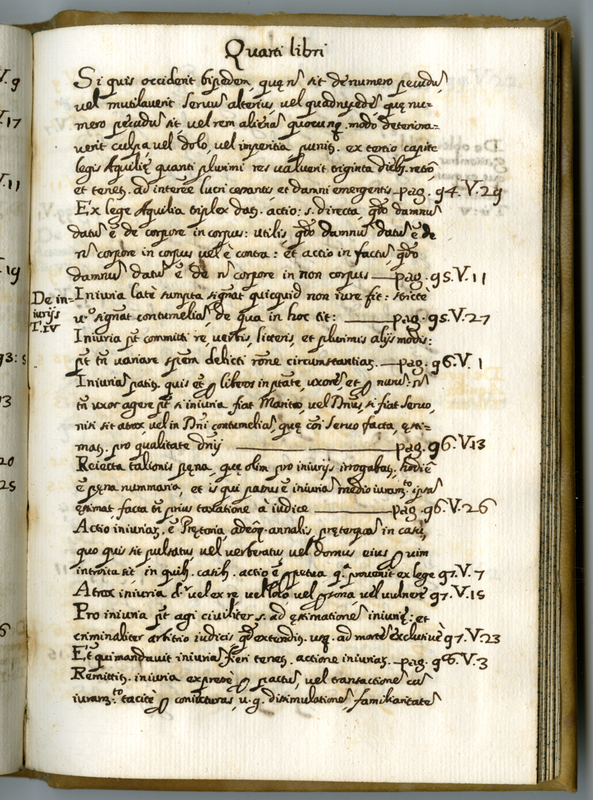 Quarti libri
Si quis occiderit bipedem, quę nō sit de numero pecudū
vel mutilaverit servū alterius vel quadrupedē quę nu-
mero pecudū sit vel rem alienā quocunq. modo deteriora-
verit culpa vel dolo, vel imperitia punit. ex tertio capite
legis Aquilię quanti plurimi res valuerit triginta dieb.
et tenet. ad interēē lucri cessantis et damni emergentis pag. 94. V. 29
Ex lege Aquilia triplex dat. actio: s. directa qdo damnū
datū ē de corpore in corpus: utilis qdo damnū datū ē de
nō corpore in corpus vel è contra: et actio in factū qdo
damnū datū ē de nō corpore in non corpus pag. 95. V. 11
De in-
iurijs
T. iv
Iniuria latè sumpta signat quicquid non iure fit: strictè
v.º signat contumeliā de qua in hoc tit: pag. 95. V. 27
Iniuria pōt committi re, verbis, litteris, et plurimis alijs modis:
pōt tn̄ variare spēm delicti rōne circumstantias. pag. 96. V. 1
Iniuriā patit. quis et p liberos in ptate, uxorē et p nurū: nō
tn̄ uxor agere pōt si iniuria fiat Marito, vel Dnus si fiat servo,
nisi sit atrox vel in Dni contumeliā, quę cōi servo facta ęsti-
mat. pro qualitate dnij pag. 96. V. 13
Reiecta talionis pęna, quę olim pro iniurijs irrogabat. hodiè
ē pęna nummaria, et is qui passus ē iniuriā medio iuram.to ipsā
ęstimat facta tn̄ prius taxatione à iudice pag. 96. V. 26
Actio iniuriar. ē Pretoria adeoq. annalis, pręterquā in casu,
quo quis sit pulsatus vel verberatus vel domus eius p vim
introita sit in quib. casib. actio ē ppetua q.ª provenit ex lege 97. V. 7
Atrox iniuria d.r vel ex re vel loco vel psona vel vulnere 97. V. 15
Pro iniuria pōt agi civiliter s. ad ęstimationē iniurię: et
criminaliter arbitrio iudicis qd extendit. usq. ad mortē exclusivè 97. V. 23
Et qui mandavit iniuriā fieri tenet. actione iniuriar. pag. 98. V. 3
Remittit. iniuria expressè p pactū, vel transactionē cū
iuram.to tacitè p coniecturas, v.g. dissimulationē familiaritatē